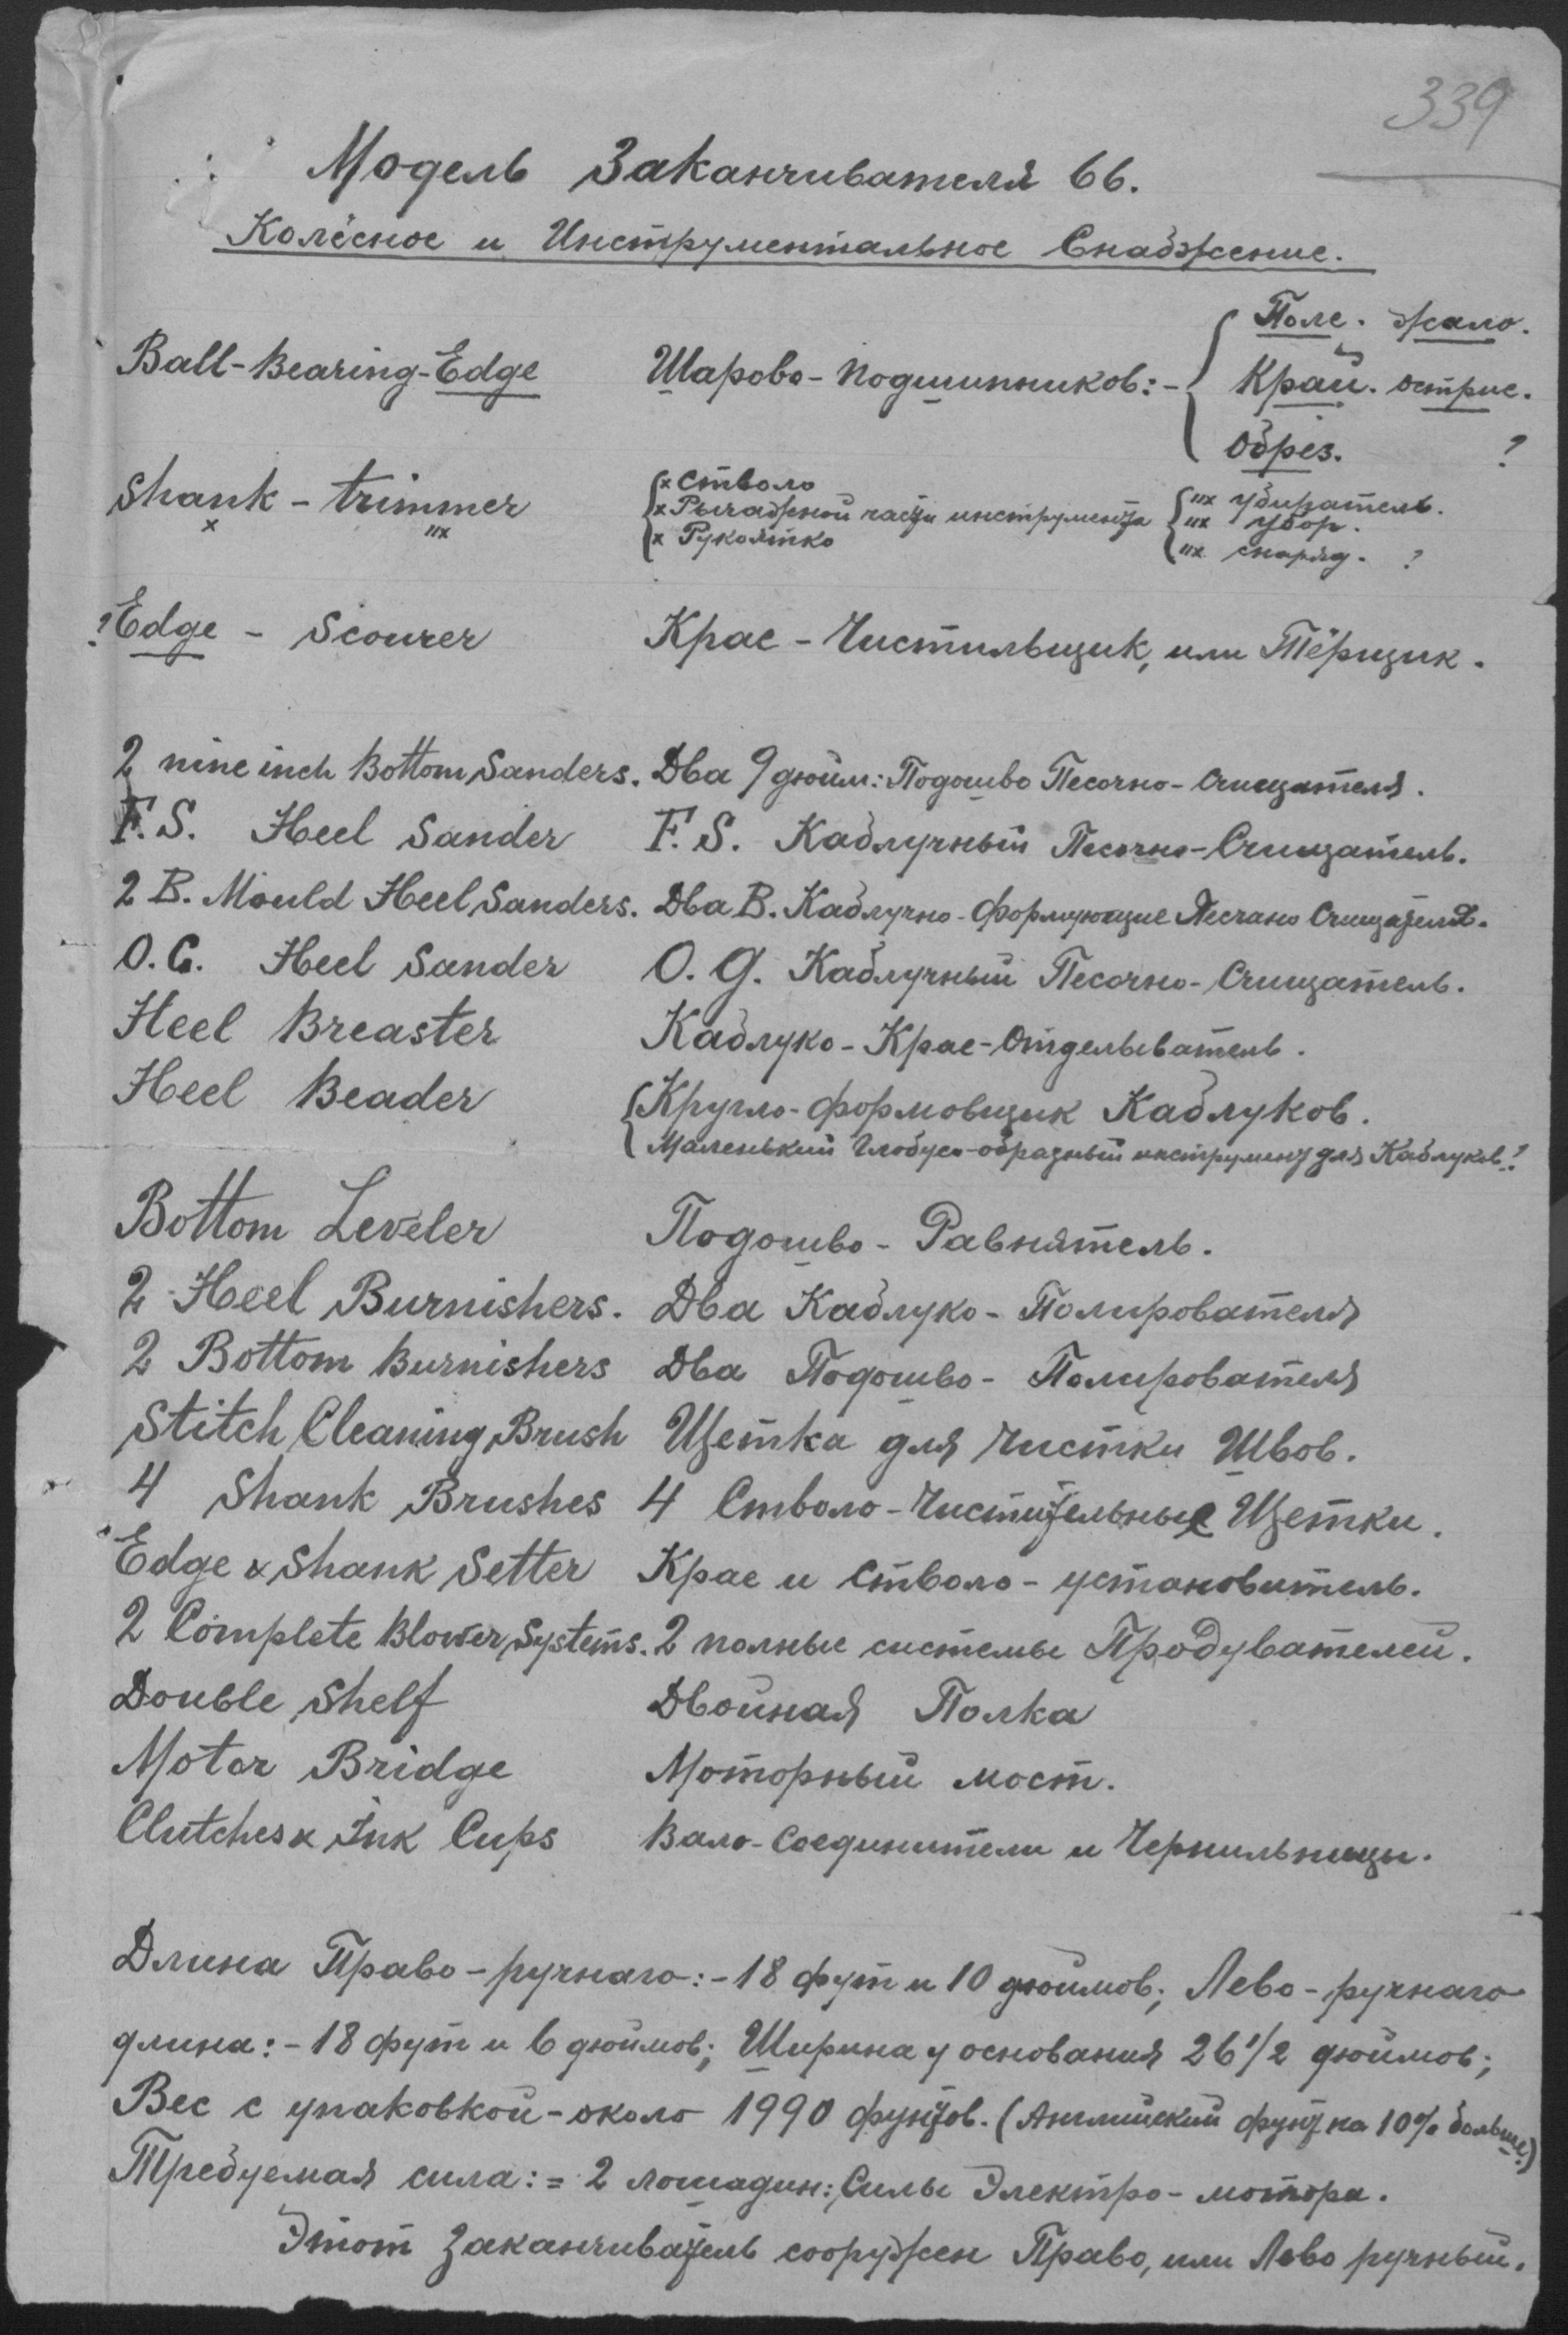 339
Модель Заканчивателя 66.
Колёсное и Инструментальное Снабжение.
Ball-Bearing-Edge Шарово-подшипников:- { Поле. жало.
Край. острие.
Обрез. ?
Shank - trimmer
x "x
{ x Стволо
x Рычажной части инструмента
x Рукоятко
{ "x убиратель.
"x убор.
"x снаряд. ?
? Edge - Scourer Крае - Чистильщик, или Тёрщик.
2 nine inch Bottom Sanders. Два 9 дюйм: Подошво Песочно-Счищателя.
F.S. Heel Sander F.S. Каблучный Песочно-Счищатель.
2 B. Mould Heel Sanders. Два B. Каблучно-формующие Песчано Счищателя.
O.G. Heel Sander O.G. Каблучный Песочно-Счищатель.
Heel Breaster Каблуко-Крае-Отделыватель.
Heel Beader { Кругло-формовщик Каблуков.
Маленький Глобусо-образный инструмент для Каблуков.?
Bottom Leveler Подошво-Равнятель.
2 Heel Burnishers. Два Каблуко-Полирователя
2 Bottom Burnishers Два Подошво-Полирователя
Stitch Cleaning Brush Щетка для Чистки Швов.
4 Shank Brushes 4 Стволо-Чистительные Щетки.
Edge & Shank Setter Крае и Стволо-установитель.
2 Complete Blower Systems. 2 полные системы Продувателей.
Double Shelf Двойная Полка
Motor Bridge Моторный мост.
Clutches & Ink Cups Вало-Соединители и Чернильницы.
Длина Право-ручнаго:-18 фут и 10 дюймов; Лево-ручнаго
длина:-18 фут и 6 дюймов; Ширина у основания 26 1/2 дюймов;
Вес с упаковкой-около 1990 фунтов. (Английский фунт на 10% больше.)
Требуемая сила:= 2 лошадин: Силы Электро-мотора.
Этот Заканчиватель сооружен Право, или Лево ручный.